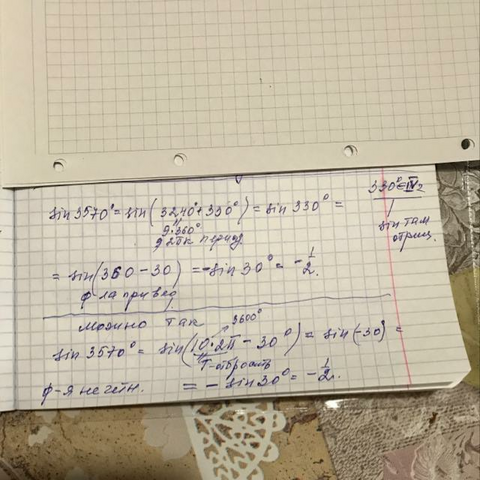 sin 3570° = sin(3240° + 330°) = sin 330° =
330° ∈ IV
9·360°
sin там
отриц.
= sin(360 - 30) = - sin 30° = - 1/2.
ф-ла привед
можно так
3600°
sin 3570° = sin(10·2π - 30°) = sin(-30°) =
T-отбросить
ф-я нечётн. = - sin 30° = - 1/2.